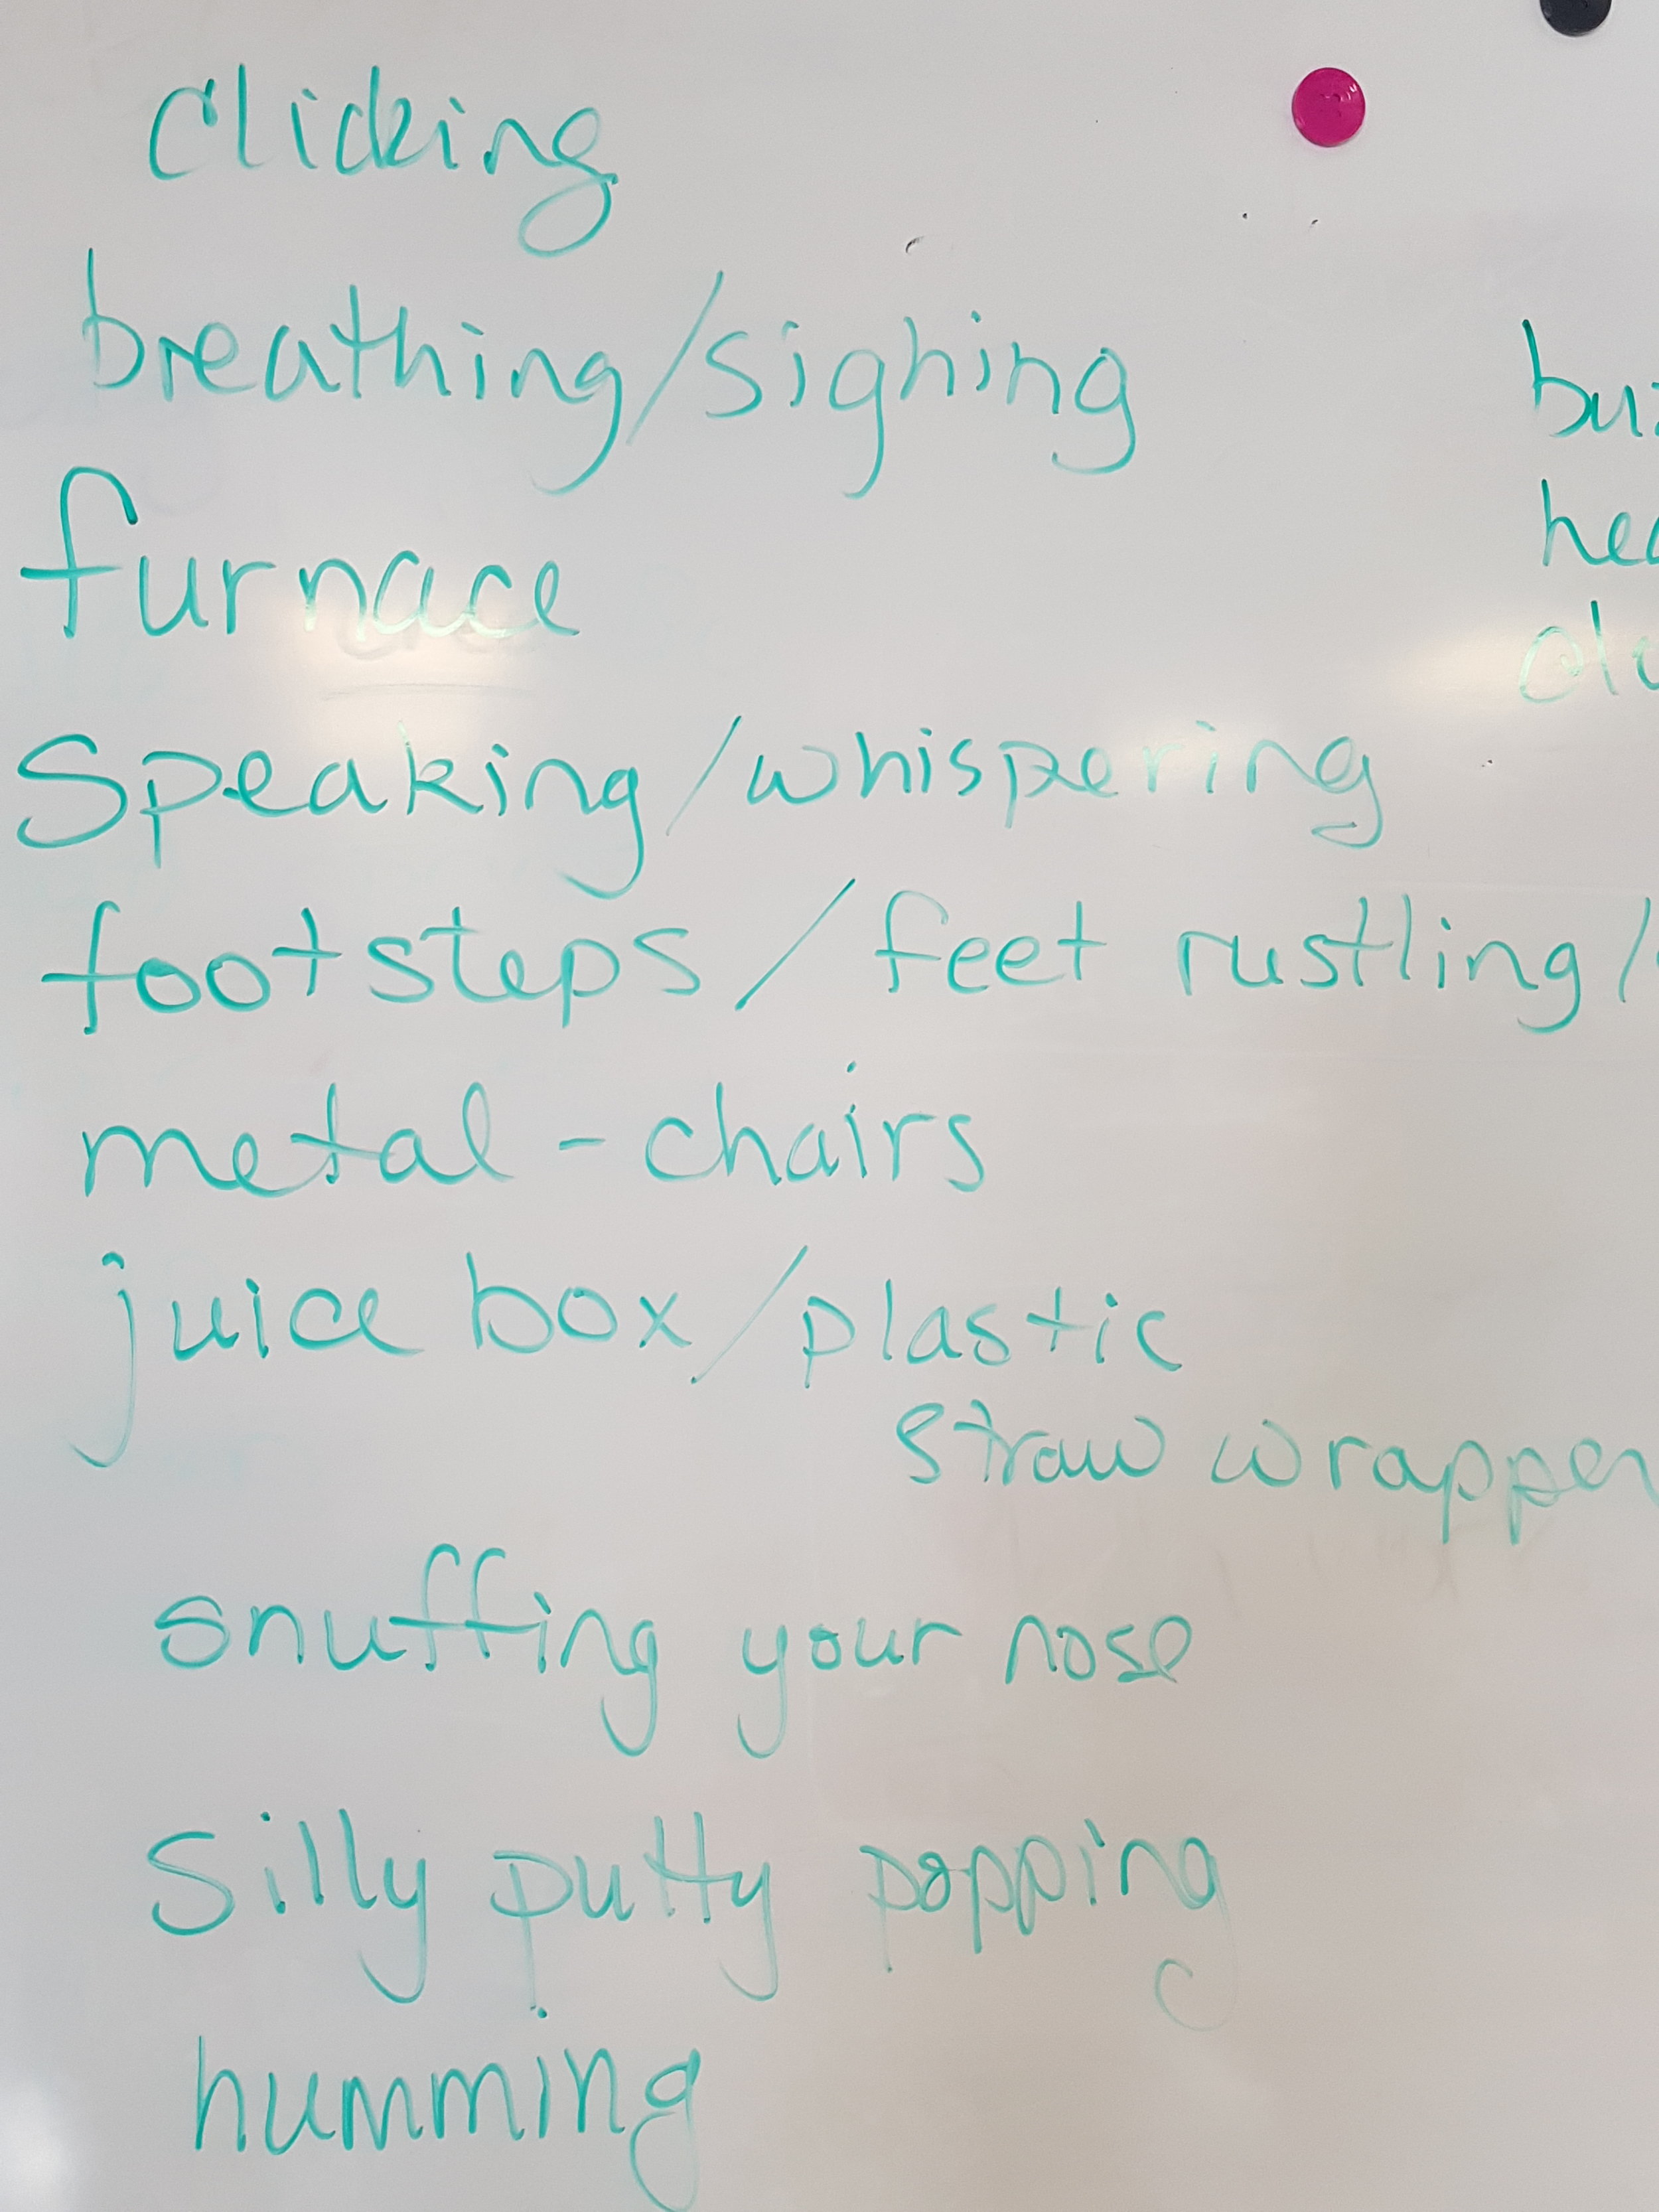 clicking
breathing/sighing
furnace
Speaking/whispering
footsteps/feet rustling/
metal-chairs
juice box/plastic
straw wrapper
snuffing your nose
Silly putty popping
humming